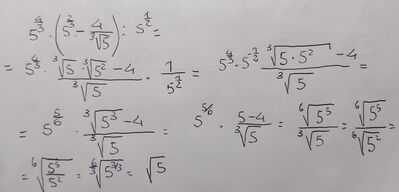 5^{4/3} · (5^{2/3} − 4/∛5) : 5^{1/2} =
= 5^{4/3} · (∛5 · ∛5² − 4)/∛5 · 1/5^{1/2} = 5^{4/3} · 5^{-1/2} · (∛(5 · 5²) − 4)/∛5 =
= 5^{5/6} · (∛5³ − 4)/∛5 = 5^{5/6} · (5−4)/∛5 = ⁶√5⁵/∛5 = ⁶√5⁵/⁶√5² =
= ⁶√(5⁵/5²) = ⁶√5³ = √5